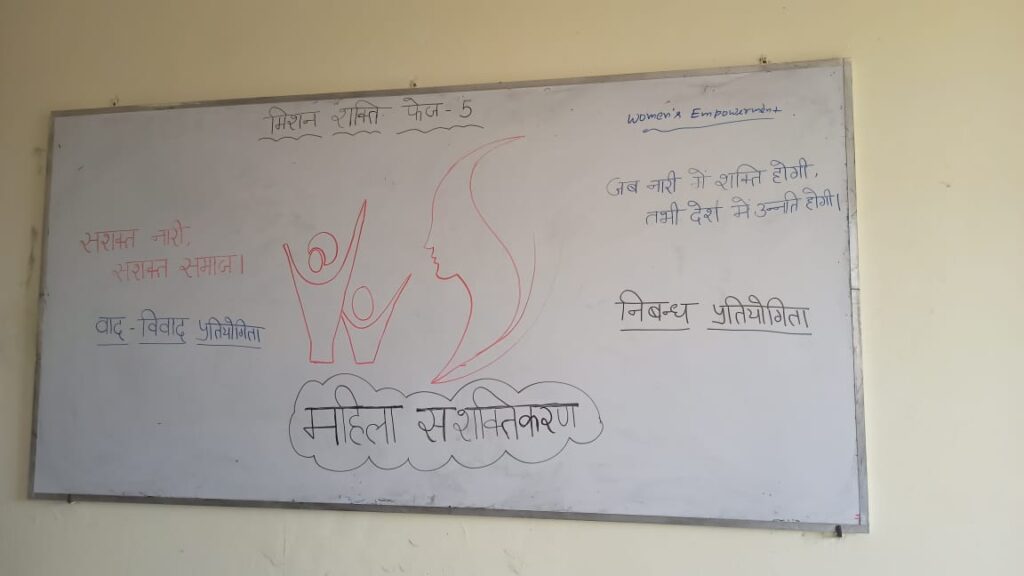 मिशन शक्ति फेज-5
Women's Empowerment
जब नारी में शक्ति होगी,
तभी देश में उन्नति होगी।
सशक्त नारी,
सशक्त समाज।
वाद-विवाद प्रतियोगिता
निबन्ध प्रतियोगिता
महिला सशक्तिकरण